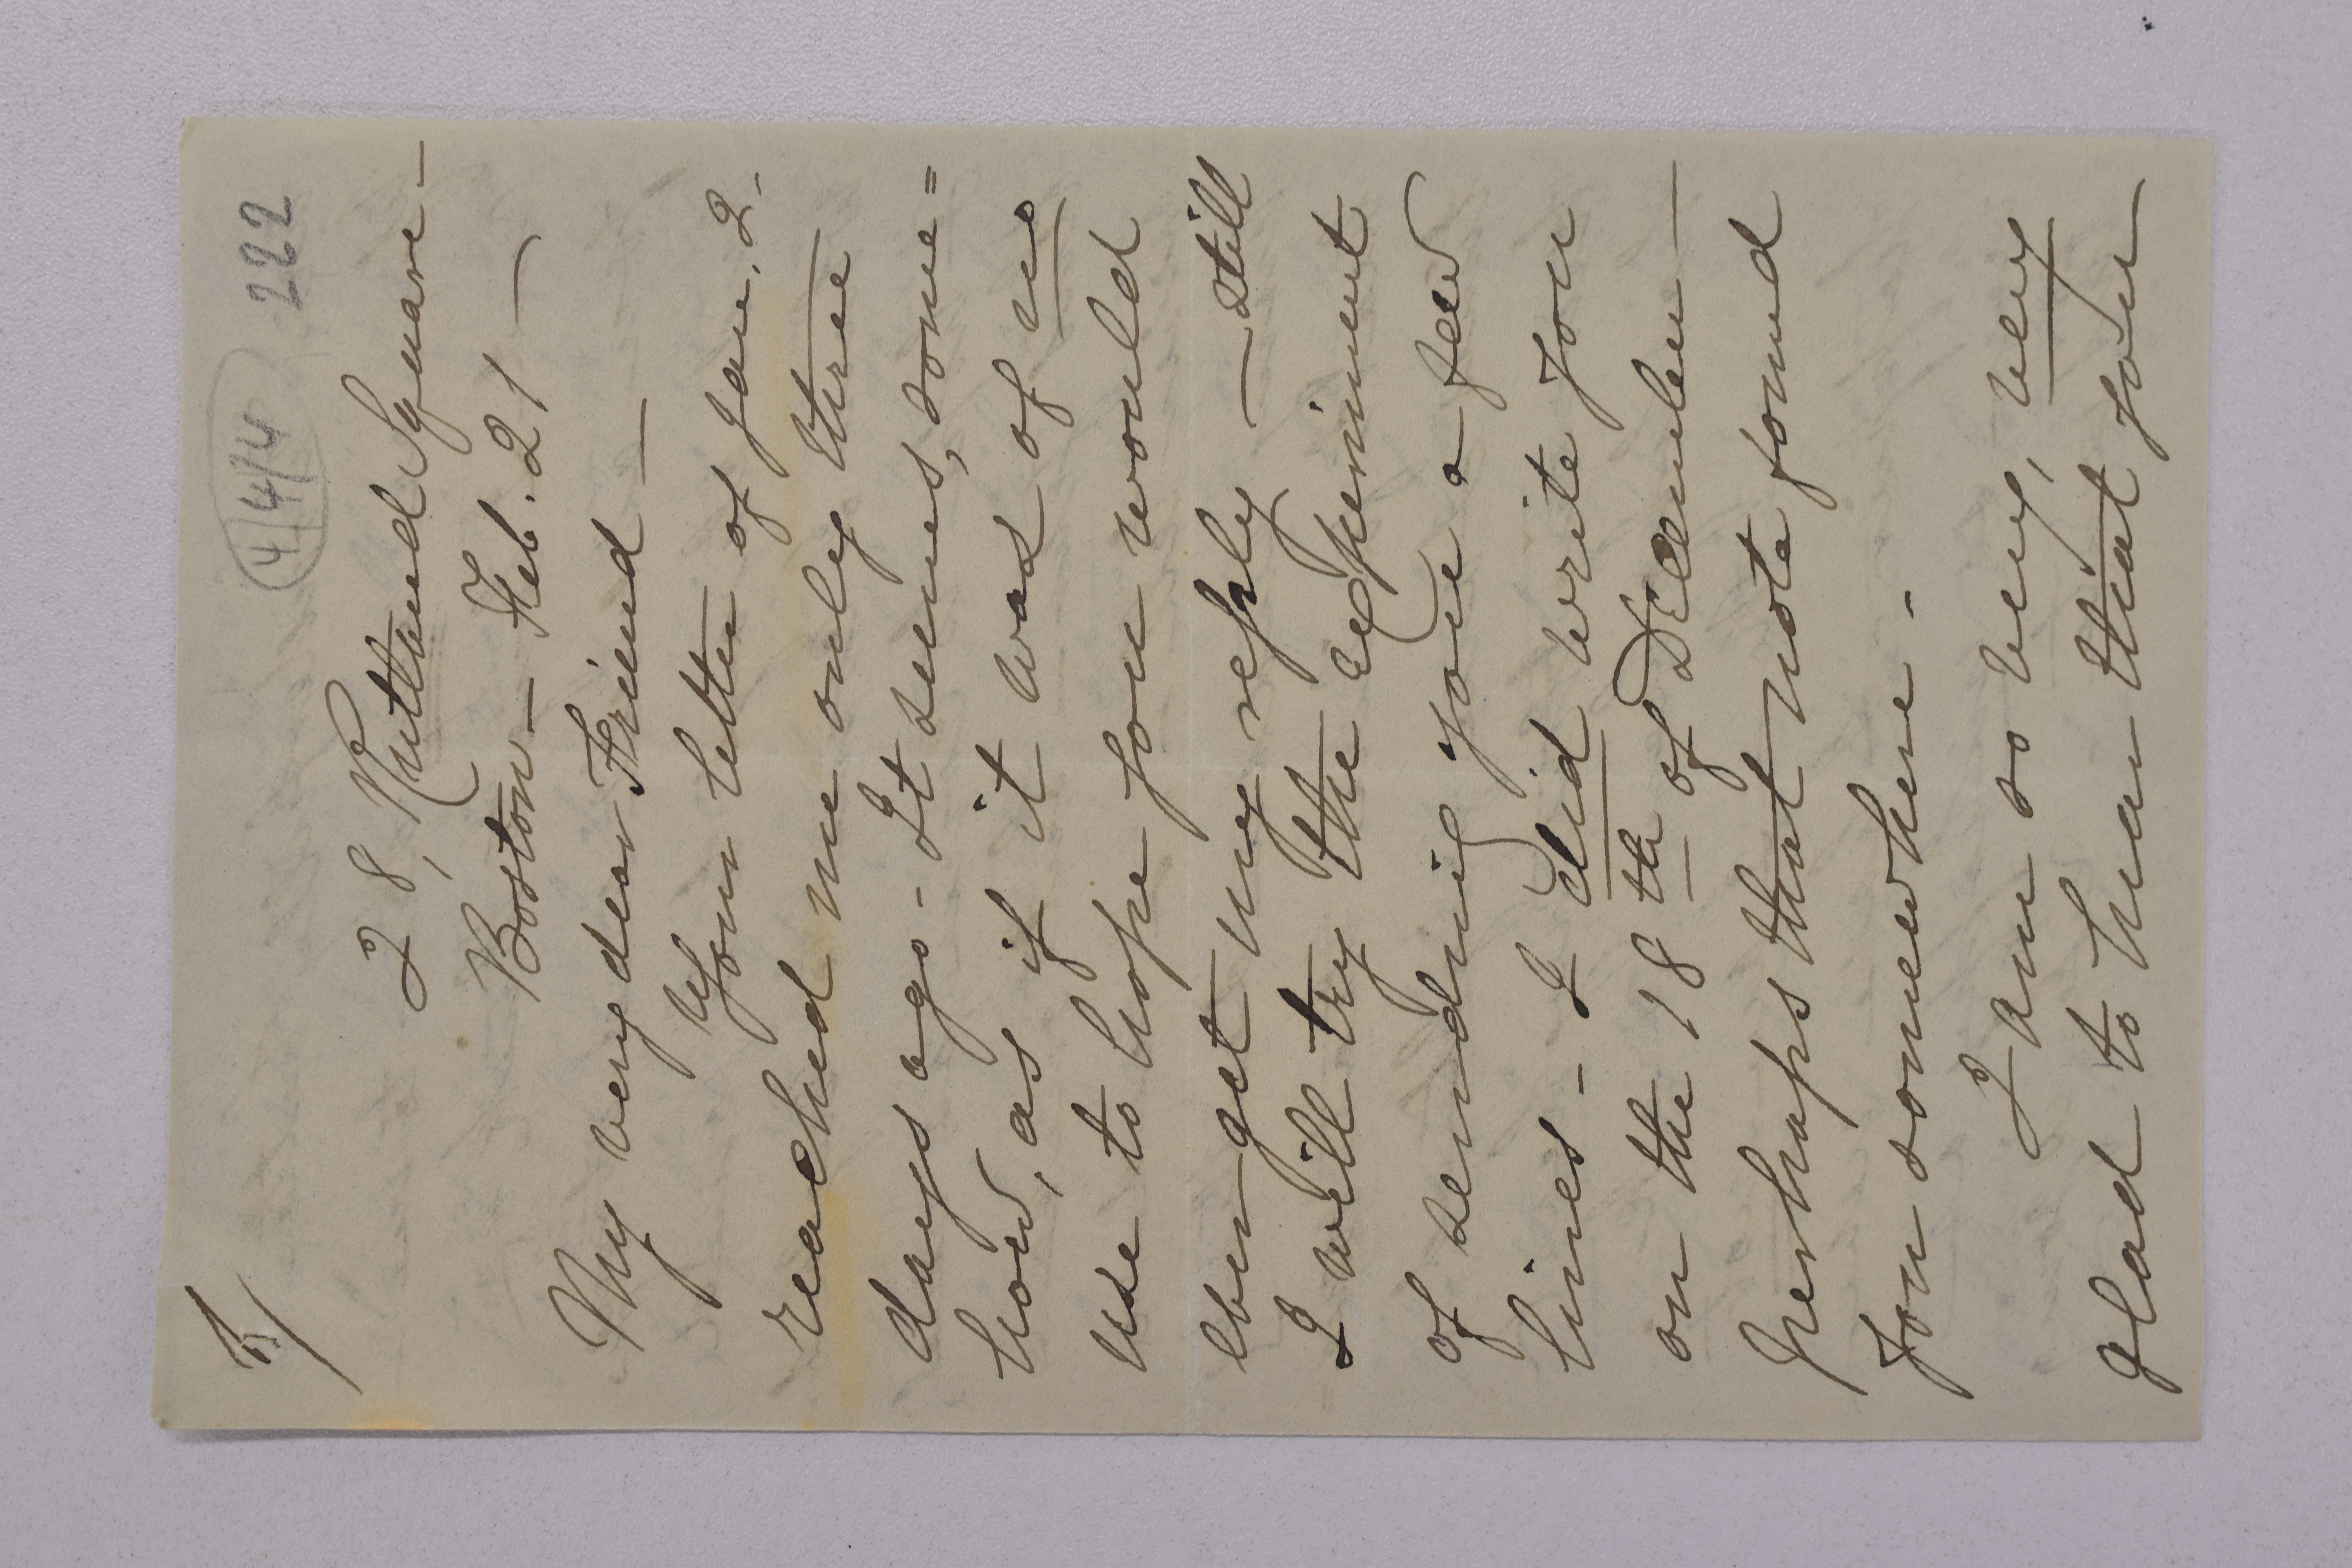 4/4/4 222
28, Rutland Square -
Boston - Feb. 21 -
My very dear Friend -
Your letter of Jan. 2.
reached me only three
days ago - It seems, some=
how, as if it was of no
use to hope you would
ever get my reply - still
I will try the experiment
of sending you a few
lines - I did write you
on the 18th of December -
perhaps that note found
you somewhere -
I am so very, very
glad to hear that you